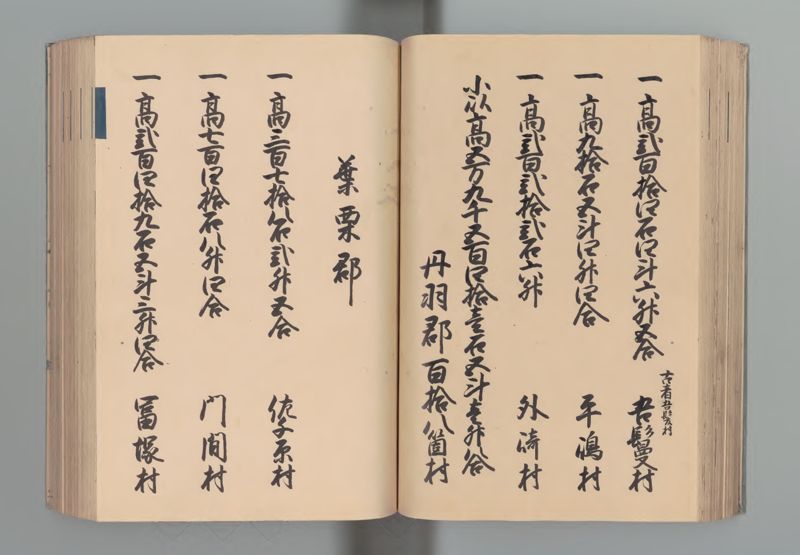 一 高弐百拾四石四斗六升五合 吾鬘村
古者吾髪村
一 高九拾石五斗四升四合 平嶋村
一 高弐百弐拾弐石六升 外崎村
小以高五万九千五百四拾壱石五斗壱升八合
丹羽郡百拾八箇村
葉栗郡
一 高三百七拾八石弐升五合 佐千原村
一 高七百四拾石八升四合 門間村
一 高弐百四拾九石五斗三升四合 冨塚村